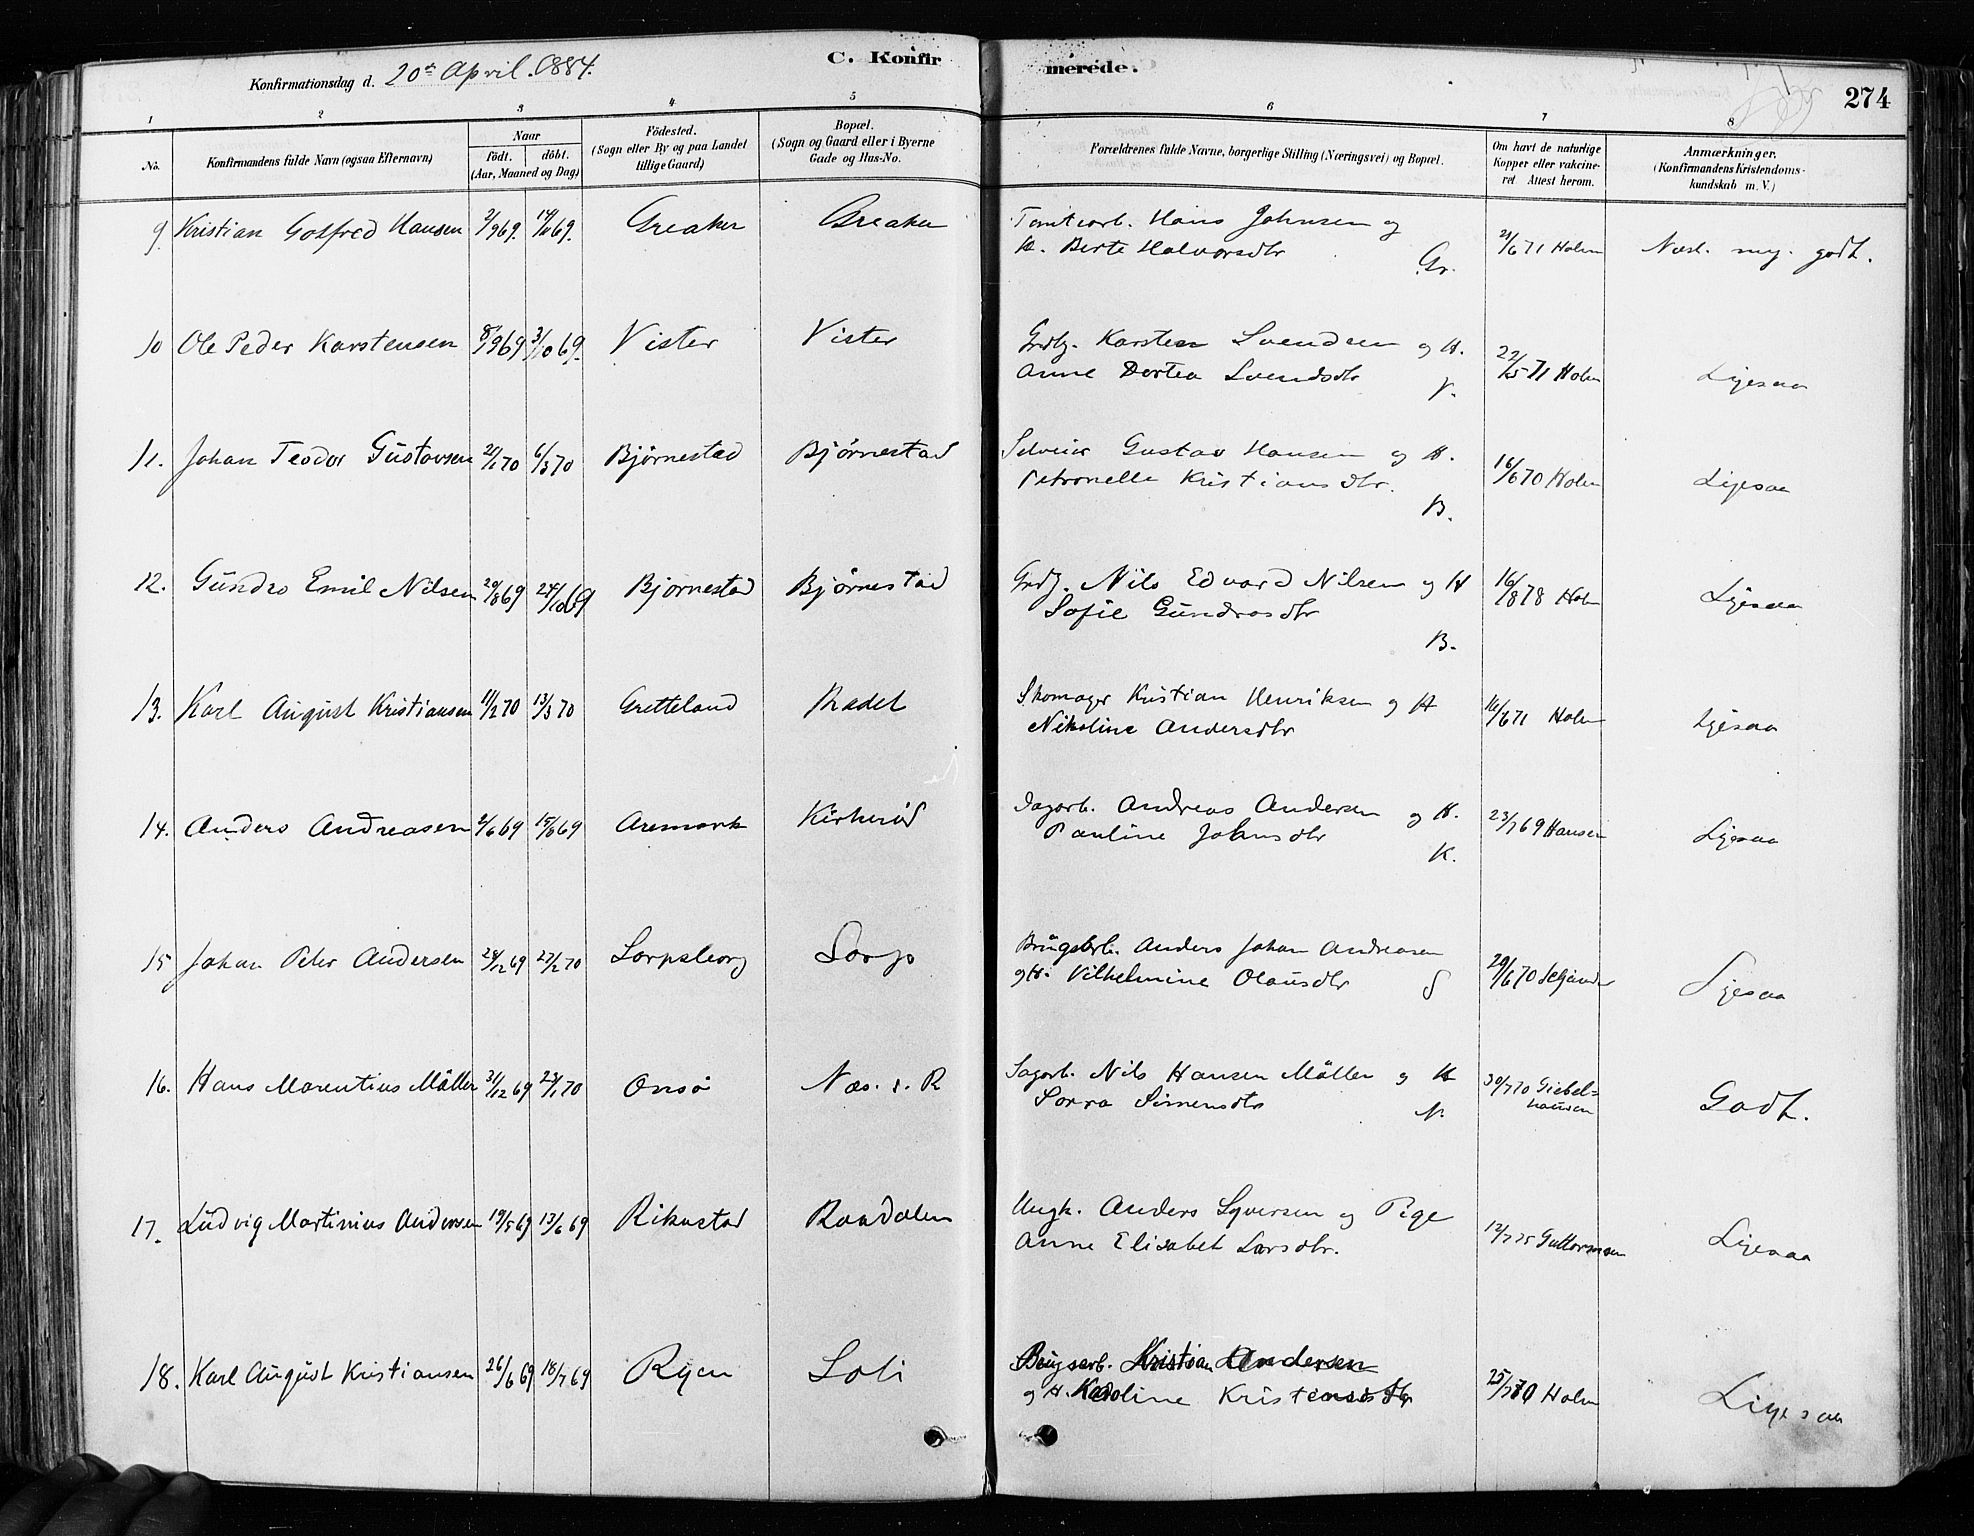 Konfirmationsdag d. 20de April 1884.
C. Konfirmerede.
274
1 2 3 4 5 6 7 8
No.
Konfirmandens fulde Navn (ogsaa Efternavn)
Naar
födt. döbt.
(Aar, Maaned og Dag)
Födested.
(Sogn eller By og paa Landet
tillige Gaard)
Bopæl.
(Sogn og Gaard eller i Byerne
Gade og Hus-No.
Forældrenes fulde Navne, borgerlige Stilling (Næringsvei) og Bopæl.
Om havt de naturlige
Kopper eller vakcine-
ret Attest herom.
Anmærkninger.
(Konfirmandens Kristendoms-
kundskab m. V.)
9 Kristian Gotfred Hansen 2/9 69. 14/11 69. Greaker Greaker Tomtearb. Hans Johnsen og 21/6 71 Holm Næst. meg. godt.
H. Berte Halvorsdtr Gr.
10 Ole Peder Karstensen 8/9 69 3/10 69. Vister Vister Grdbg. Karsten Svendsen og H. 22/5 71 Holm Ligesaa
Anne Dortea Svendsdtr V.
11. Johan Teodor Gustavsen 2/1 70 6/3 70 Bjørnestad Bjørnestad Selveier Gustav Hansen og H. 16/6 70 Holm Ligesaa
Petronelle Kristiansdtr. B.
12. Gundro Emil Nilsen 29/8 69 24/10 69 Bjørnestad Bjørnestad Grdbg. Nils Edvard Nilsen og H 16/8 78 Holm Ligesaa
Sofie Gundrosdtr B.
13. Karl August Kristiansen 11/2 70 13/3 70 Gretteland Radet Skomager Kristian Henriksen og H 16/6 71 Holm Ligesaa
Nikoline Andersdtr
14. Anders Andreasen 2/6 69 15/8 69 Aremark Kirkerød Dagarb. Andreas Andersen og H. 23/7 69 Hansen Ligesaa
Pauline Johnsdtr K.
15 Johan Peter Andersen 24/12 69 27/2 70 Sarpsborg Sarp Brugsarb. Anders Johan Andreasen 29/6 70 Ligesaa
og H. Vilhelmine Olausdtr S
16. Hans Marentius Møller 31/12 69 23/1 70 Onsø Næs. i. R Sagarb. Nils Hansen Møller og H 30/7 70 Giebel= Godt.
hausen
Simensdtr N.
17. Ludvig Martinius Andersen 19/5 69 13/6 69 Rikustad Raadalen Ungk. Anders Syversen og Pige 12/7 75 Guttormsen Ligesaa
Anne Elisabet Larsdtr.
18. Karl August Kristiansen 26/6 69 18/7 69 Ryen Soli Brugsarb. Kristian Andersen 25/7 70 Holm Ligesaa
og H. Karoline Kristensdtr